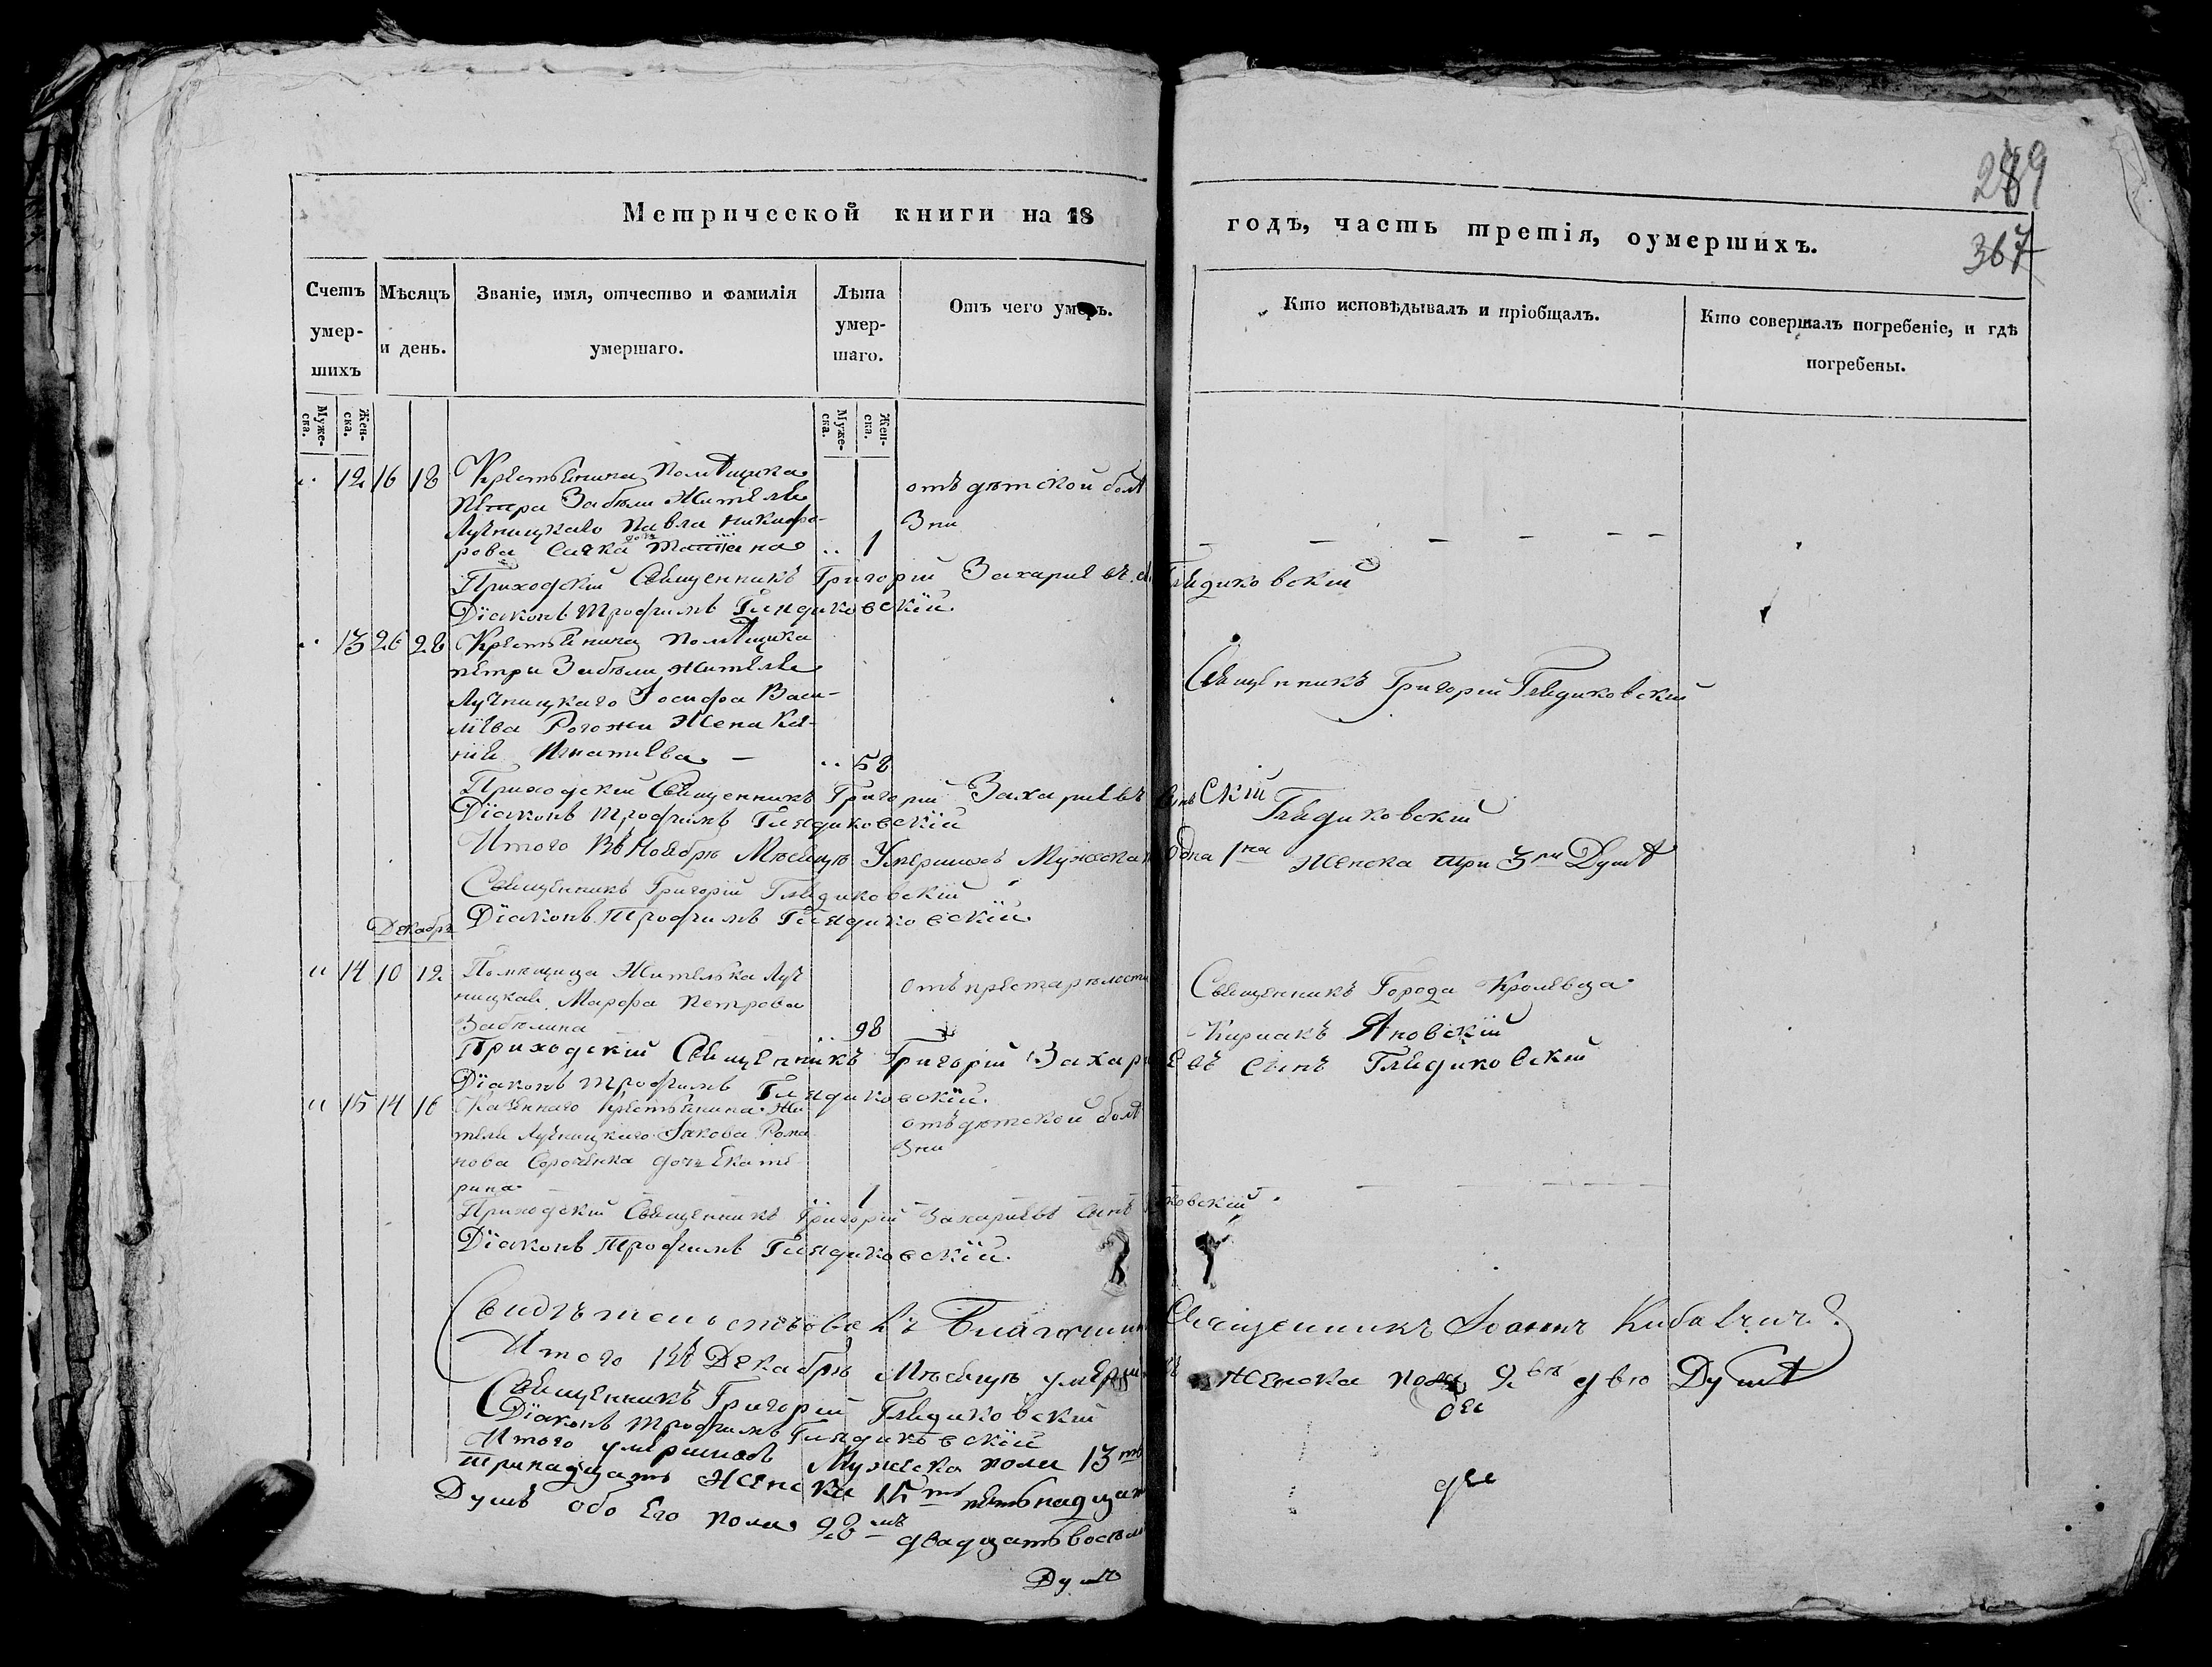 289
367
Метрической книги на 18 годъ, часть третія, оумершихъ.
Счетъ умер-шихъ
Мѣсяцъ и день.
Званіе, имя, отчество и фамилія умершаго.
Лѣта умер-шаго.
Отъ чего умеръ.
Кто исповѣдывалъ и пріобщалъ.
Кто совершалъ погребеніе, и гдѣ погребены.
Муже-ска.
Жен-ска.
Муже-ска.
Жен-ска.
12 16 18 Крестьянина помѣщика
Петра Забѣли жителя
Лучницкаго Павла Никифо-
рова Сачка дочь
1
отъ дѣтской болѣ
зни
Приходскій Священникъ Григорій Захаріевъ Глядиковскій
Діаконъ Трофимъ Глядиковскій.
13 26 28 Крестьянина помѣщика
Петра Забѣли жителя
Лучницкаго Іосифа Васи-
ліева Рогожи жена Ксе-
нія Игнатіева
58
Священникъ Григорій Глядиковскій
Приходскій Священникъ Григорій Захаріевъ сынъ Глядиковскій
Діаконъ Трофимъ Глядиковскій
Итого Въ Ноябрѣ Мѣсяцѣ Умершихъ Мужска одна 1на женска три 3ри Душѣ
Священникъ Григорій Глядиковскій
Діаконъ Трофимъ Глядиковскій.
Декабрь
14 10 12 Помѣщица жителька Луч
ницкая Марфа Петрова
Забѣлина
98
отъ престарѣлости
Священникъ Города Кролевца
Кириакъ Яновскій
Приходскій Священникъ Григорій Захаріевъ сынъ Глядиковскій
Діаконъ Трофимъ Глядиковскій.
15 14 16 Казеннаго Крестьянина жи
теля Лучницкаго Іакова Рома
нова Сороченка дочь Екате
рина
1
отъ дѣтской болѣ
зни
Приходскій Священникъ Григорій Захаріевъ сынъ
Діаконъ Трофимъ Глядиковскій.
Свидѣтельствовалъ Священникъ Іоаннъ
Итого Въ Декабрѣ Мѣсяцѣ умерш женска пола 2вѣ двѣ Душѣ
Священникъ Григорій Глядиковскій
Діаконъ Трофимъ Глядиковскій
Итого умершихъ Мужеска пола 13ть
тринадцать Женска 15ть пятьнадцать
Душъ обоего пола 28мъ двадцать восемь
Душъ